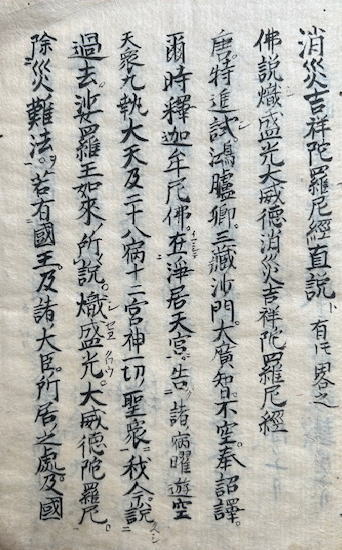 消災吉祥陀羅尼經直說 ト有ルモ畧之
佛說熾盛光大威德消災吉祥陀羅尼經
唐。特進試鴻臚卿。三藏沙門。大廣智。不空。奉詔譯。
爾時釋迦牟尼佛。在淨居天宮。告諸宿曜遊空
天衆九執大天及二十八宿十二宮神一切聖衆我今說
過去。娑羅王如來。所說。熾盛光。大威德陀羅尼。
除災難法。若有國王。及諸大臣。所居之處及國